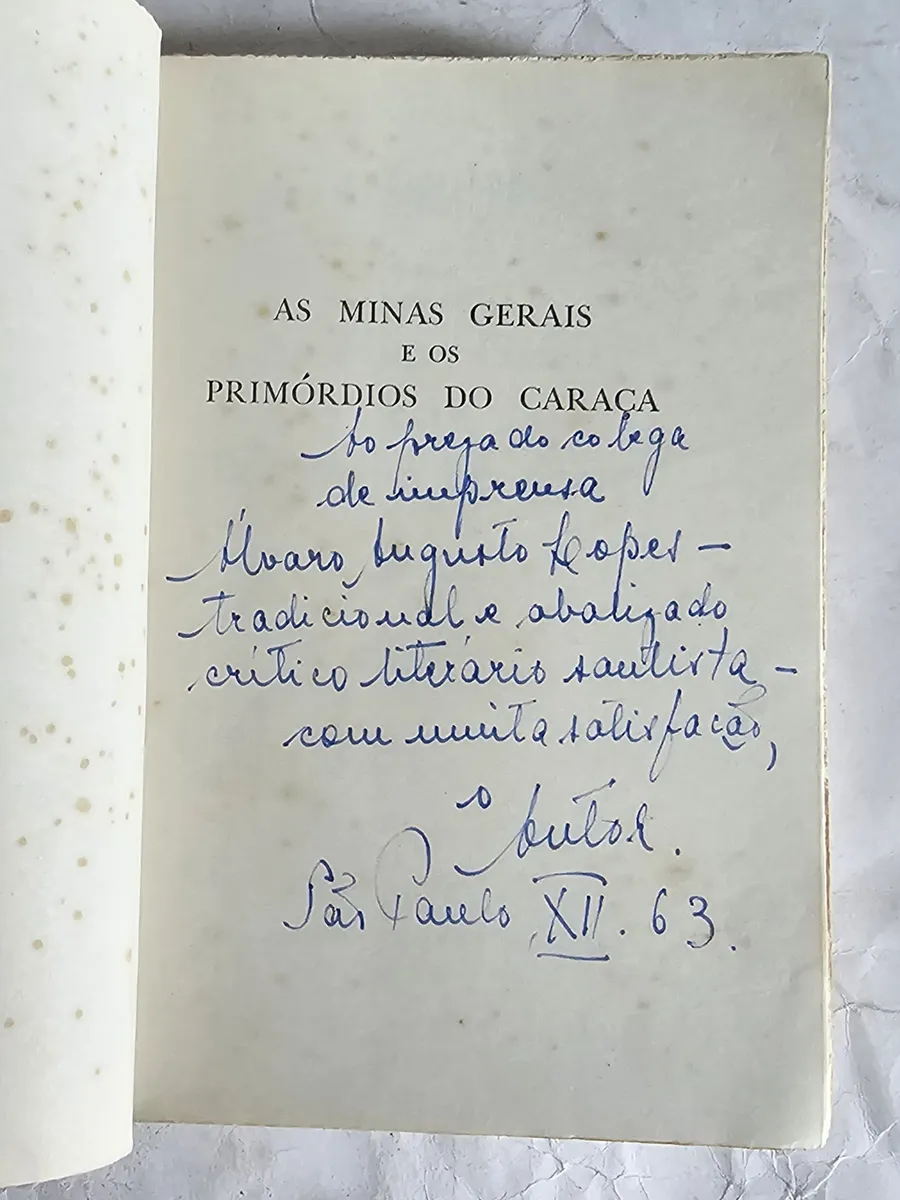 AS MINAS GERAIS
E OS
PRIMÓRDIOS DO CARAÇA
Ao prezado colega
de imprensa
Álvaro Augusto Lopes —
tradicional e abalizado
crítico literário santista —
com muita satisfação,
o Autor.
São Paulo, XII. 63.